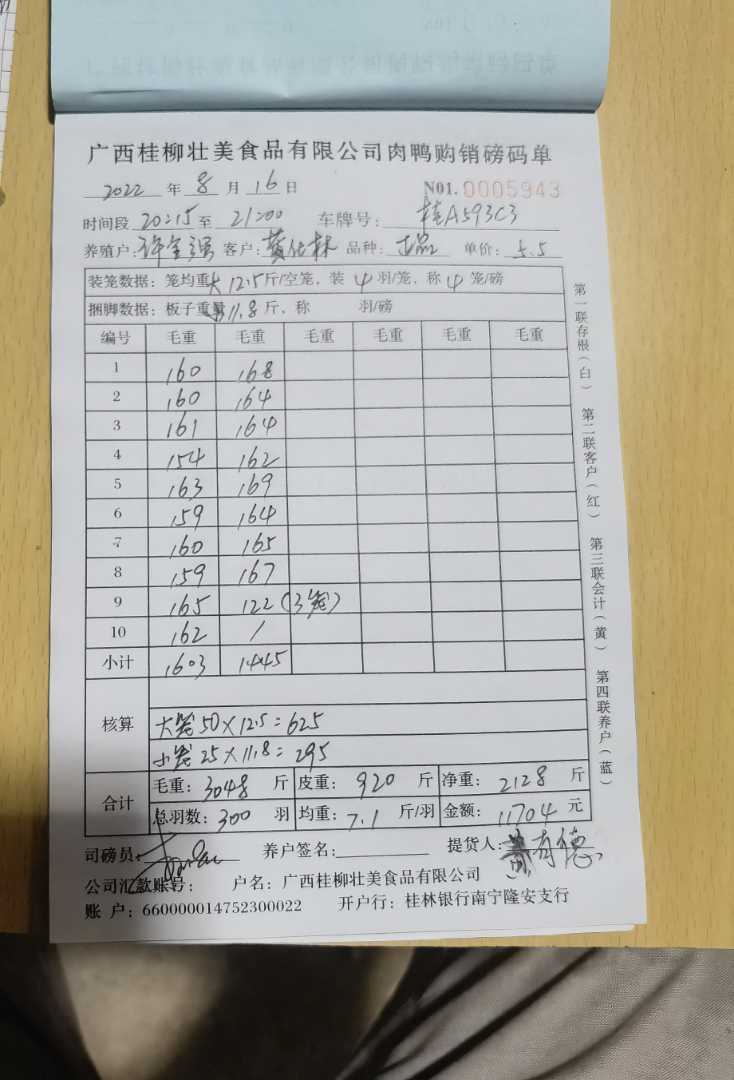 广西桂柳壮美食品有限公司肉鸭购销磅码单
2022 年 8 月 16 日 N01. 0005943
时间段 20:15 至 21:00 车牌号: 桂A593C3
养殖户: 许全强 客户: 黄 林 品种: 单价: 5.5
装笼数据: 笼均重 大12.5 斤/空笼, 装 4 羽/笼, 称 4 笼/磅
捆脚数据: 板子重量 11.8 斤, 称 羽/磅
编号 毛重 毛重 毛重 毛重 毛重 毛重
1 160 168
2 160 164
3 161 164
4 154 162
5 163 169
6 159 164
7 160 165
8 159 167
9 165 122 (3笼)
10 162 /
小计 1603 1445
核算
大笼50×12.5=625
小笼25×11.8=295
合计
毛重: 3048 斤 皮重: 920 斤 净重: 2128 斤
总羽数: 300 羽 均重: 7.1 斤/羽 金额: 11704 元
司磅员: 养户签名: 提货人: 黄有德
公司汇款账号: 户名: 广西桂柳壮美食品有限公司
账 户: 660000014752300022 开户行: 桂林银行南宁隆安支行
第一联存根(白)
第二联客户(红)
第三联会计(黄)
第四联养户(蓝)